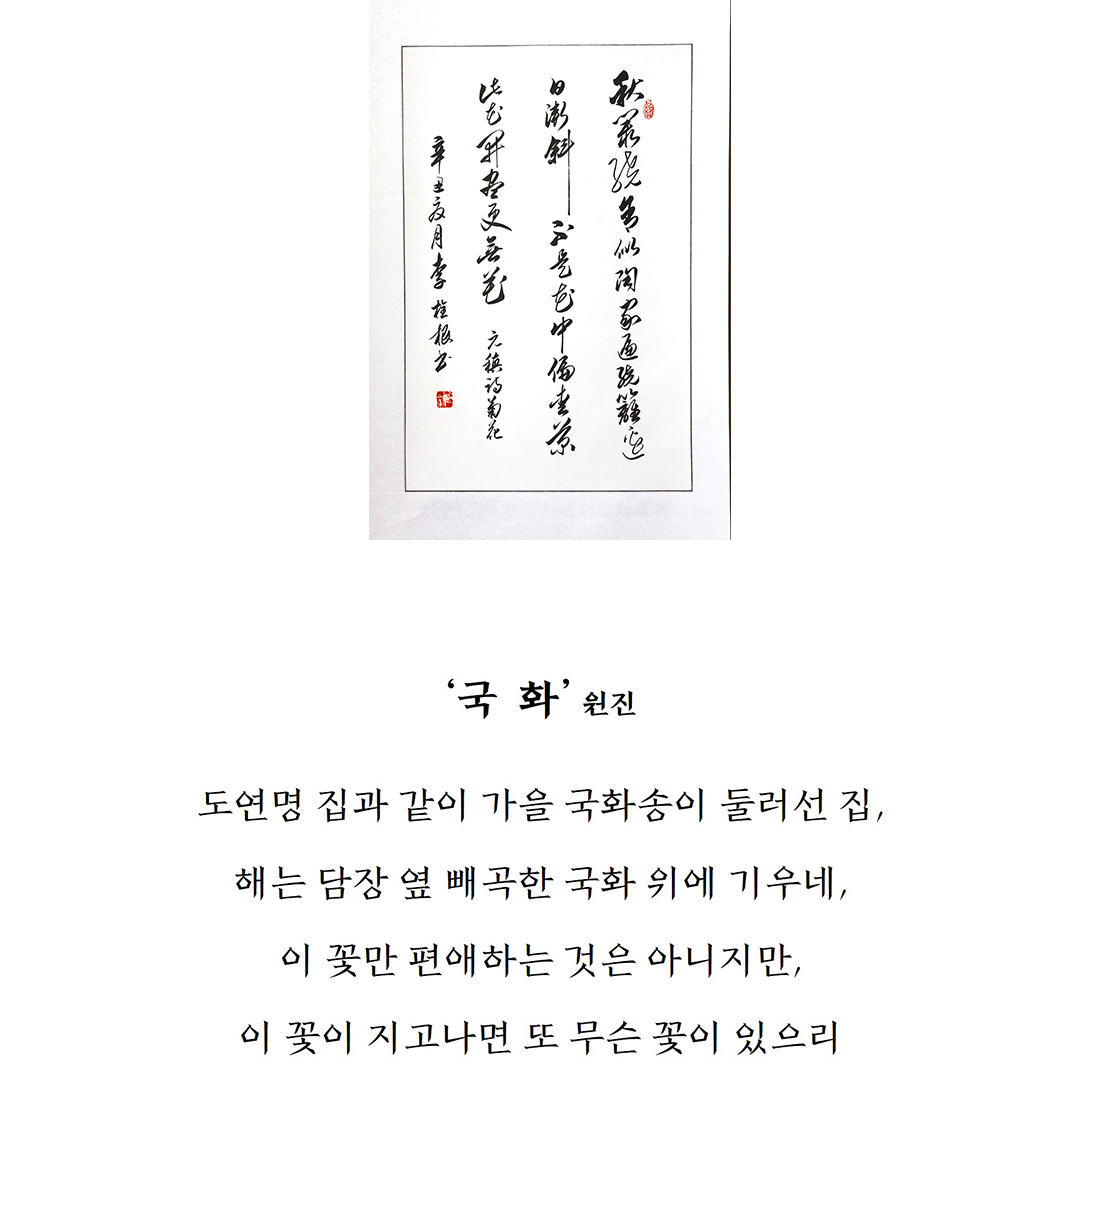 秋叢繞舍似陶家遍繞籬邊
日漸斜不是花中偏愛菊
此花開盡更無花 元稹詩菊花
辛丑夏月李 根书
‘국 화’ 원진
도연명 집과 같이 가을 국화송이 둘러선 집,
해는 담장 옆 빼곡한 국화 위에 기우네,
이 꽃만 편애하는 것은 아니지만,
이 꽃이 지고나면 또 무슨 꽃이 있으리